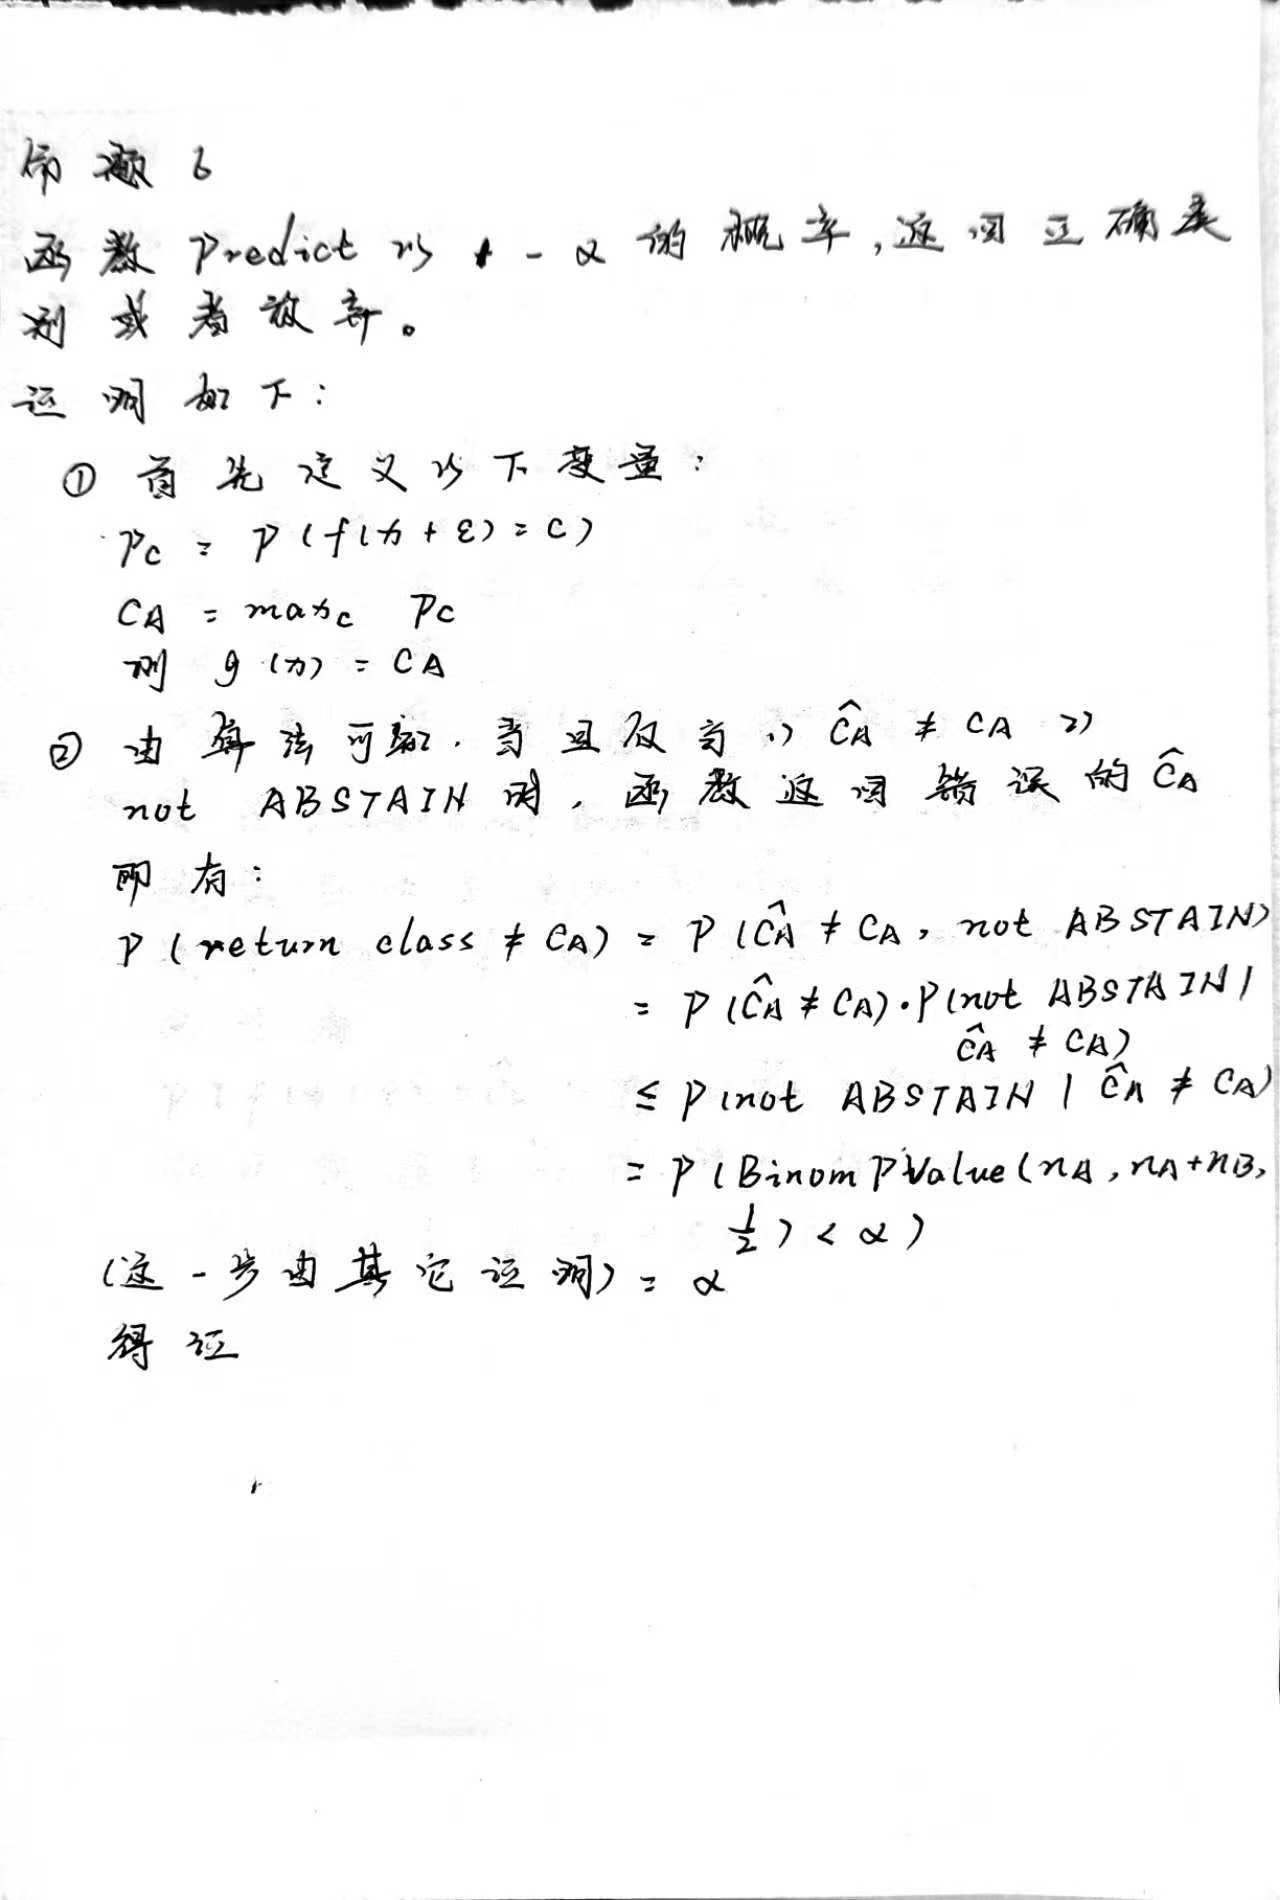 命题 6
函数 Predict 以 1 - α 的概率,返回正确类
别或者放弃。
证明如下:
① 首先定义以下变量:
Pc = P(f(x+ε)=c)
CA = maxc Pc
则 g(x) = CA
② 由算法可知.当且仅当 1) ĈA ≠ CA 2)
not ABSTAIN 时,函数返回错误的 ĈA
即有:
P(return class ≠ CA) = P(ĈA ≠ CA, not ABSTAIN)
= P(ĈA ≠ CA)·P(not ABSTAIN|
ĈA ≠ CA)
≤ P(not ABSTAIN | ĈA ≠ CA)
= P(BinomPValue(nA, nA+nB,
1/2) < α)
(这一步由其它证明) = α
得证